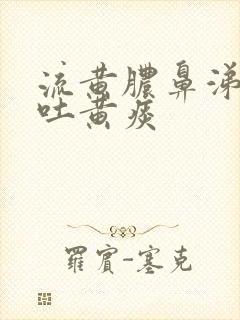 流黄膿鼻涕
吐黄痰
羅賓-塞克